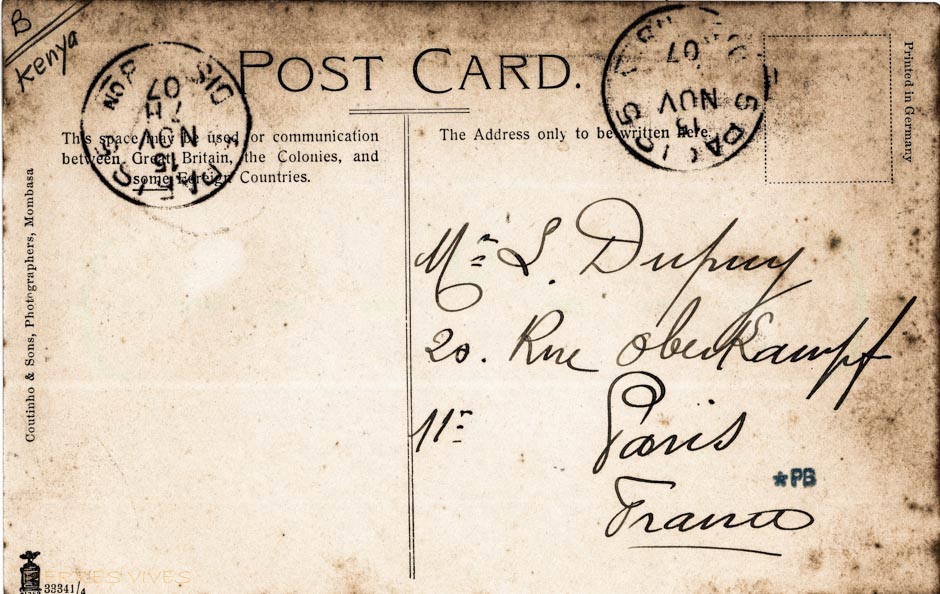 B
Kenya
POST CARD.
This space may be used for communication
between Great Britain, the Colonies, and
some Foreign Countries.
The Address only to be written here.
Printed in Germany
Coutinho & Sons, Photographers, Mombasa
PARIS
15
NOV
07
PARIS
15
NOV
07
Mr L. Dupuy
20. Rue Oberkampf
11e
Paris
France
*PB
VIVES
33341/4